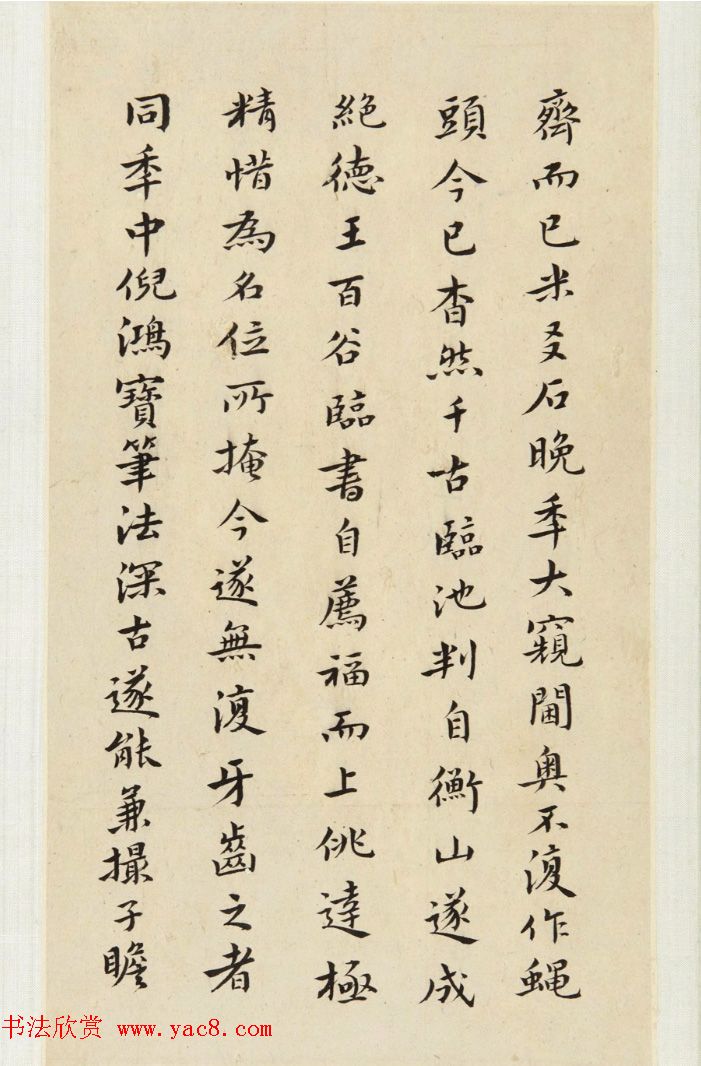 齊而已米友石晚秊大窺閫奧不復作蠅
頭今已杳然千古臨池判自衡山遂成
絕德王百谷臨書自薦福而上佻達極
精惜為名位所掩今遂無復牙齒之者
同秊中倪鴻寶筆法深古遂能兼撮子瞻
书法欣赏 www.yac8.com